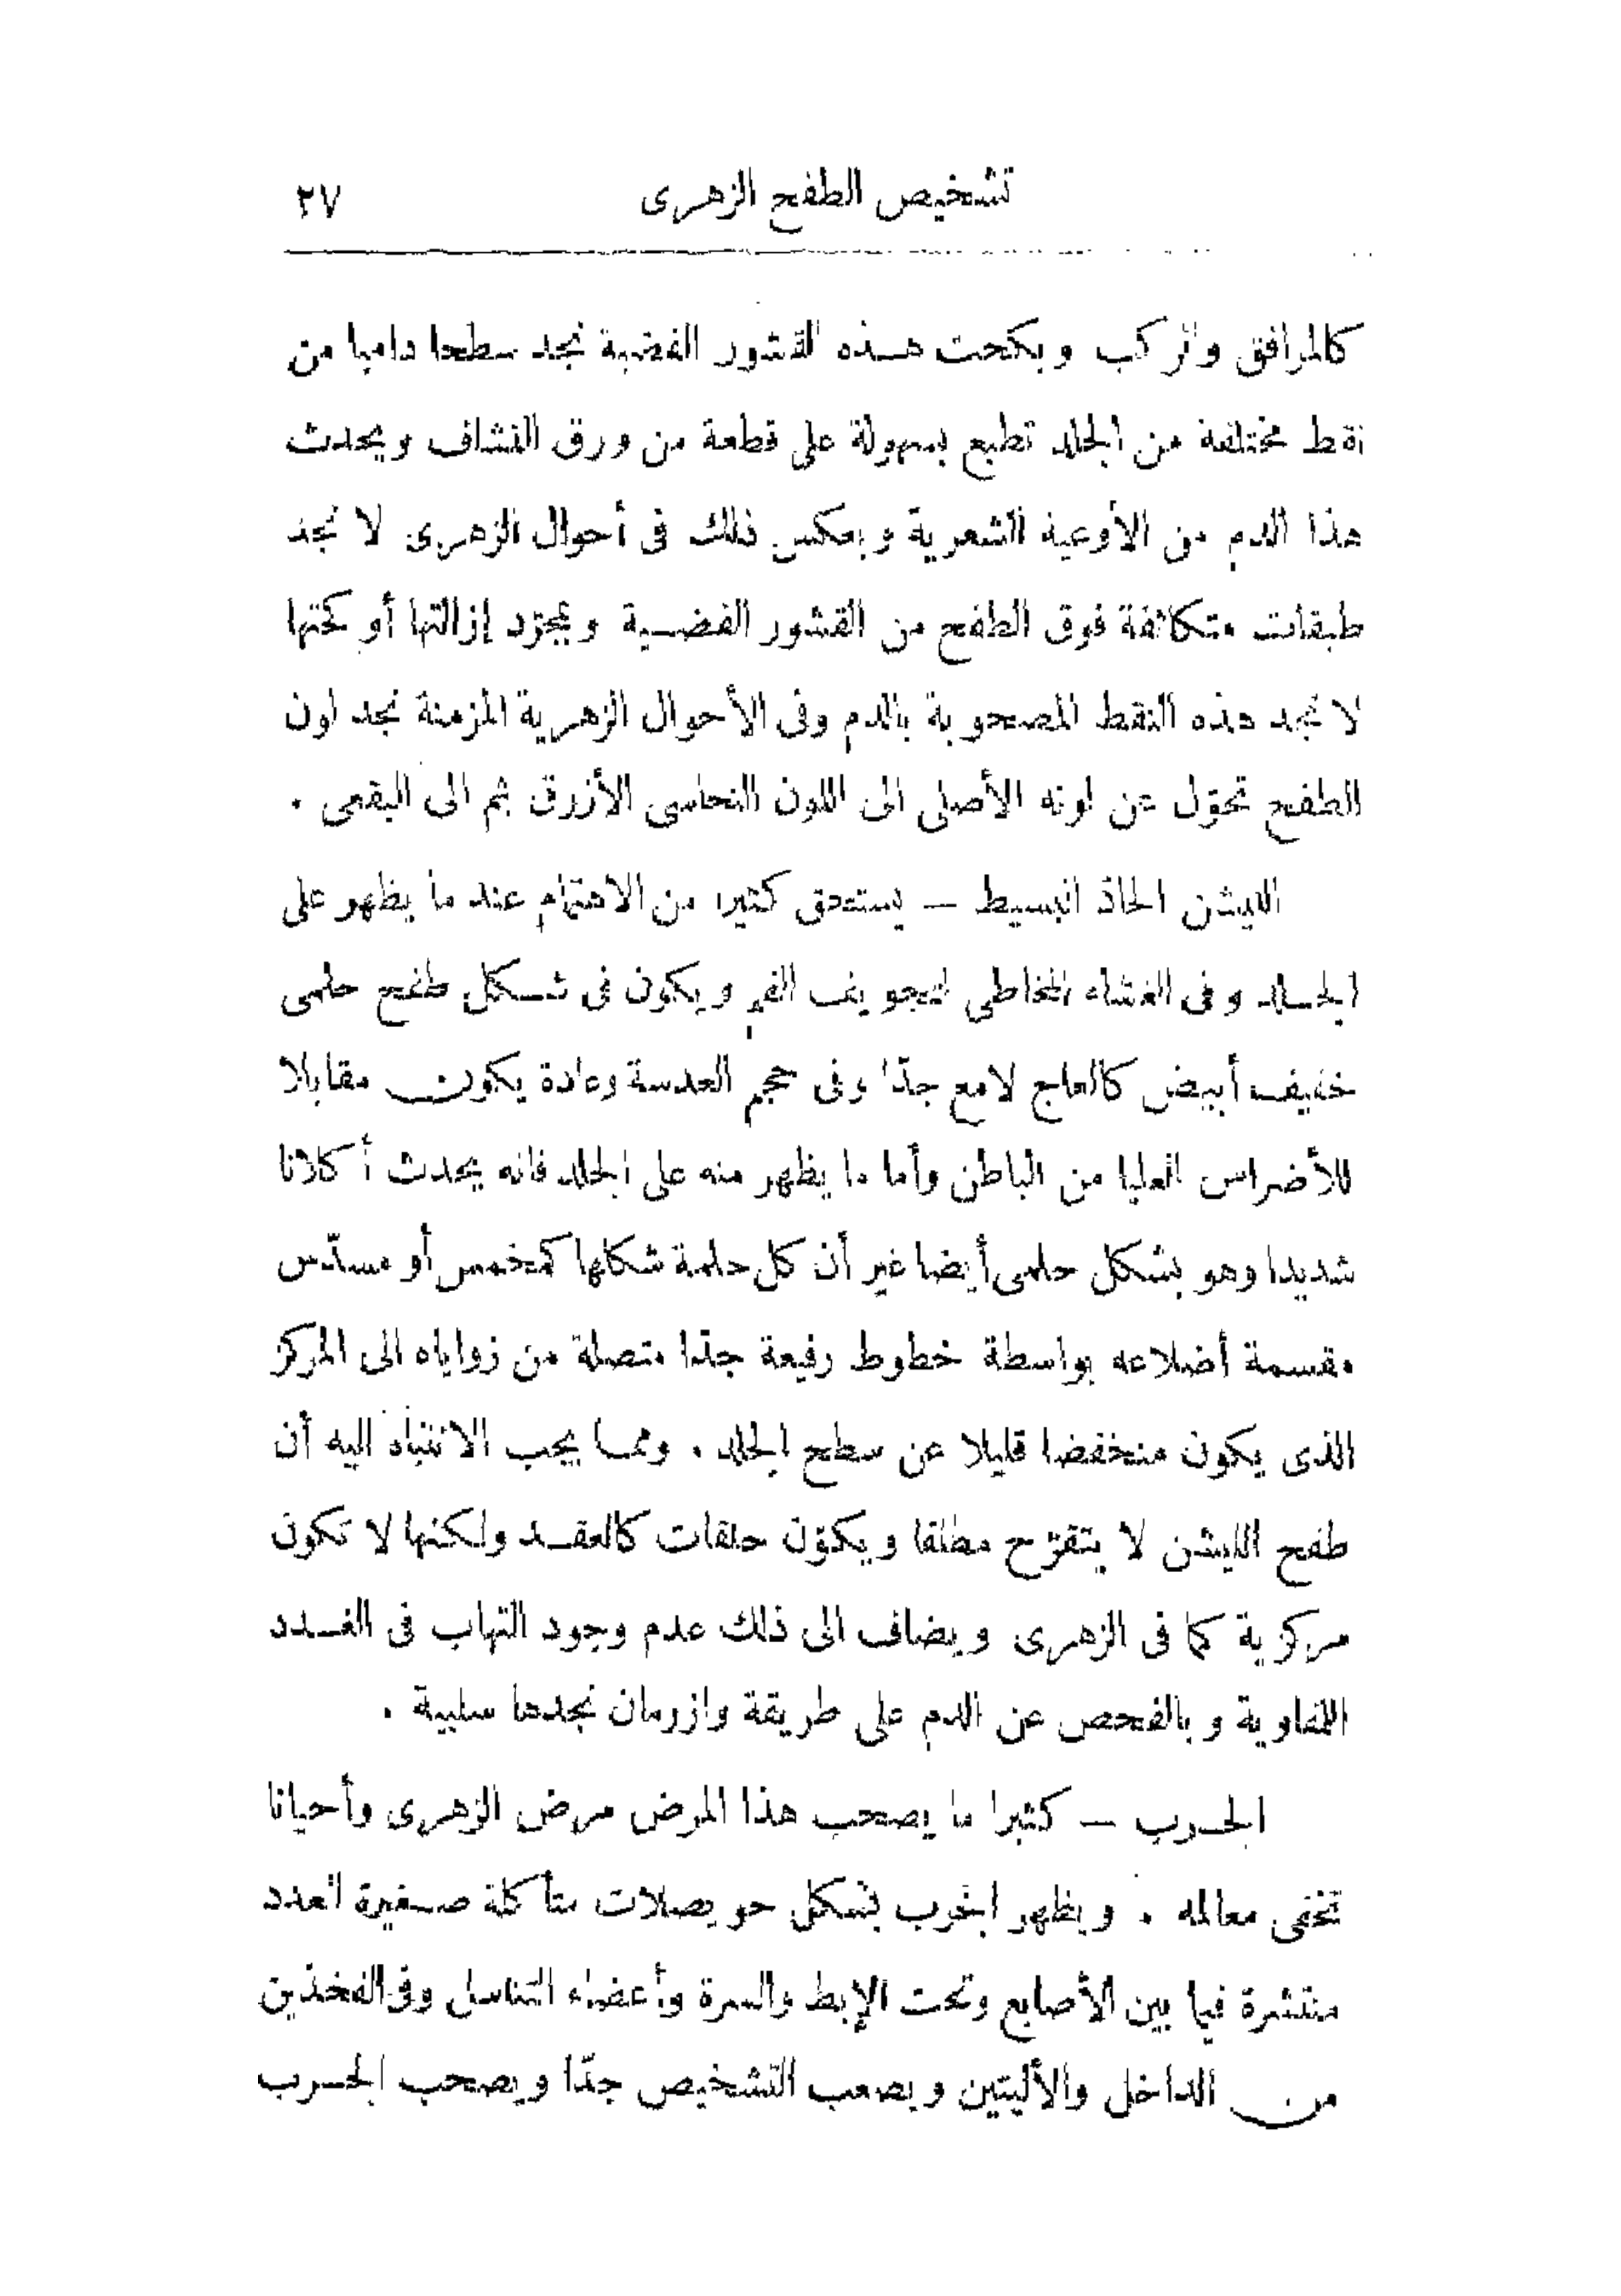 تشخيص الطفح الزهرى ٢٧
كالمرافق والركب وبكحت هذه القشور الفضية نجد سطحا داميا من
نقط مختلفة من الجلد تطبع بسهولة على قطعة من ورق النشاف ويحدث
هذا الدم من الأوعية الشعرية وبعكس ذلك فى أحوال الزهرى لا نجد
طبقات متكاثفة فوق الطفح من القشور الفضية وبمجرّد إزالتها أو كحتها
لا نجد هذه النقط المصحوبة بالدم وفى الأحوال الزهرية المزمنة نجد لون
الطفح تحوّل عن لونه الأصلى الى اللون النحاسى الأزرق ثم الى البقعى .
الليشن الحاد البسيط — يستحق كثيرا من الاهتمام عند ما يظهر على
الجلد وفى الغشاء المخاطى لتجويف الفم ويكون فى شكل طفح حلمى
خفيف أبيض كالعاج لامع جدّا وفى حجم العدسة وعادة يكون مقابلا
للأضراس العليا من الباطن وأما ما يظهر منه على الجلد فانه يحدث أكلانا
شديدا وهو بشكل حلمى أيضا غير أن كل حلمة شكلها كمخمس أو مسدّس
مقسمة أضلاعه بواسطة خطوط رفيعة جدّا متصلة من زواياه الى المركز
الذى يكون منخفضا قليلا عن سطح الجلد . ومما يجب الانتباه اليه أن
طفح الليشن لا يتقرّح مطلقا ويكوّن حلقات كالعقد ولكنها لا تكون
مركزية كما فى الزهرى ويضاف الى ذلك عدم وجود التهاب فى الغدد
اللمفاوية وبالفحص عن الدم على طريقة وازرمان نجدها سلبية .
الجرب — كثيرا ما يصحب هذا المرض مرض الزهرى وأحيانا
تختفى معالمه . ويظهر الجرب بشكل حويصلات متأكلة صغيرة العدد
منتشرة فيما بين الأصابع وتحت الإبط والسرة وأعضاء التناسل وفى الفخذين
من الداخل والأليتين ويصعب التشخيص جدّا ويصحب الجرب